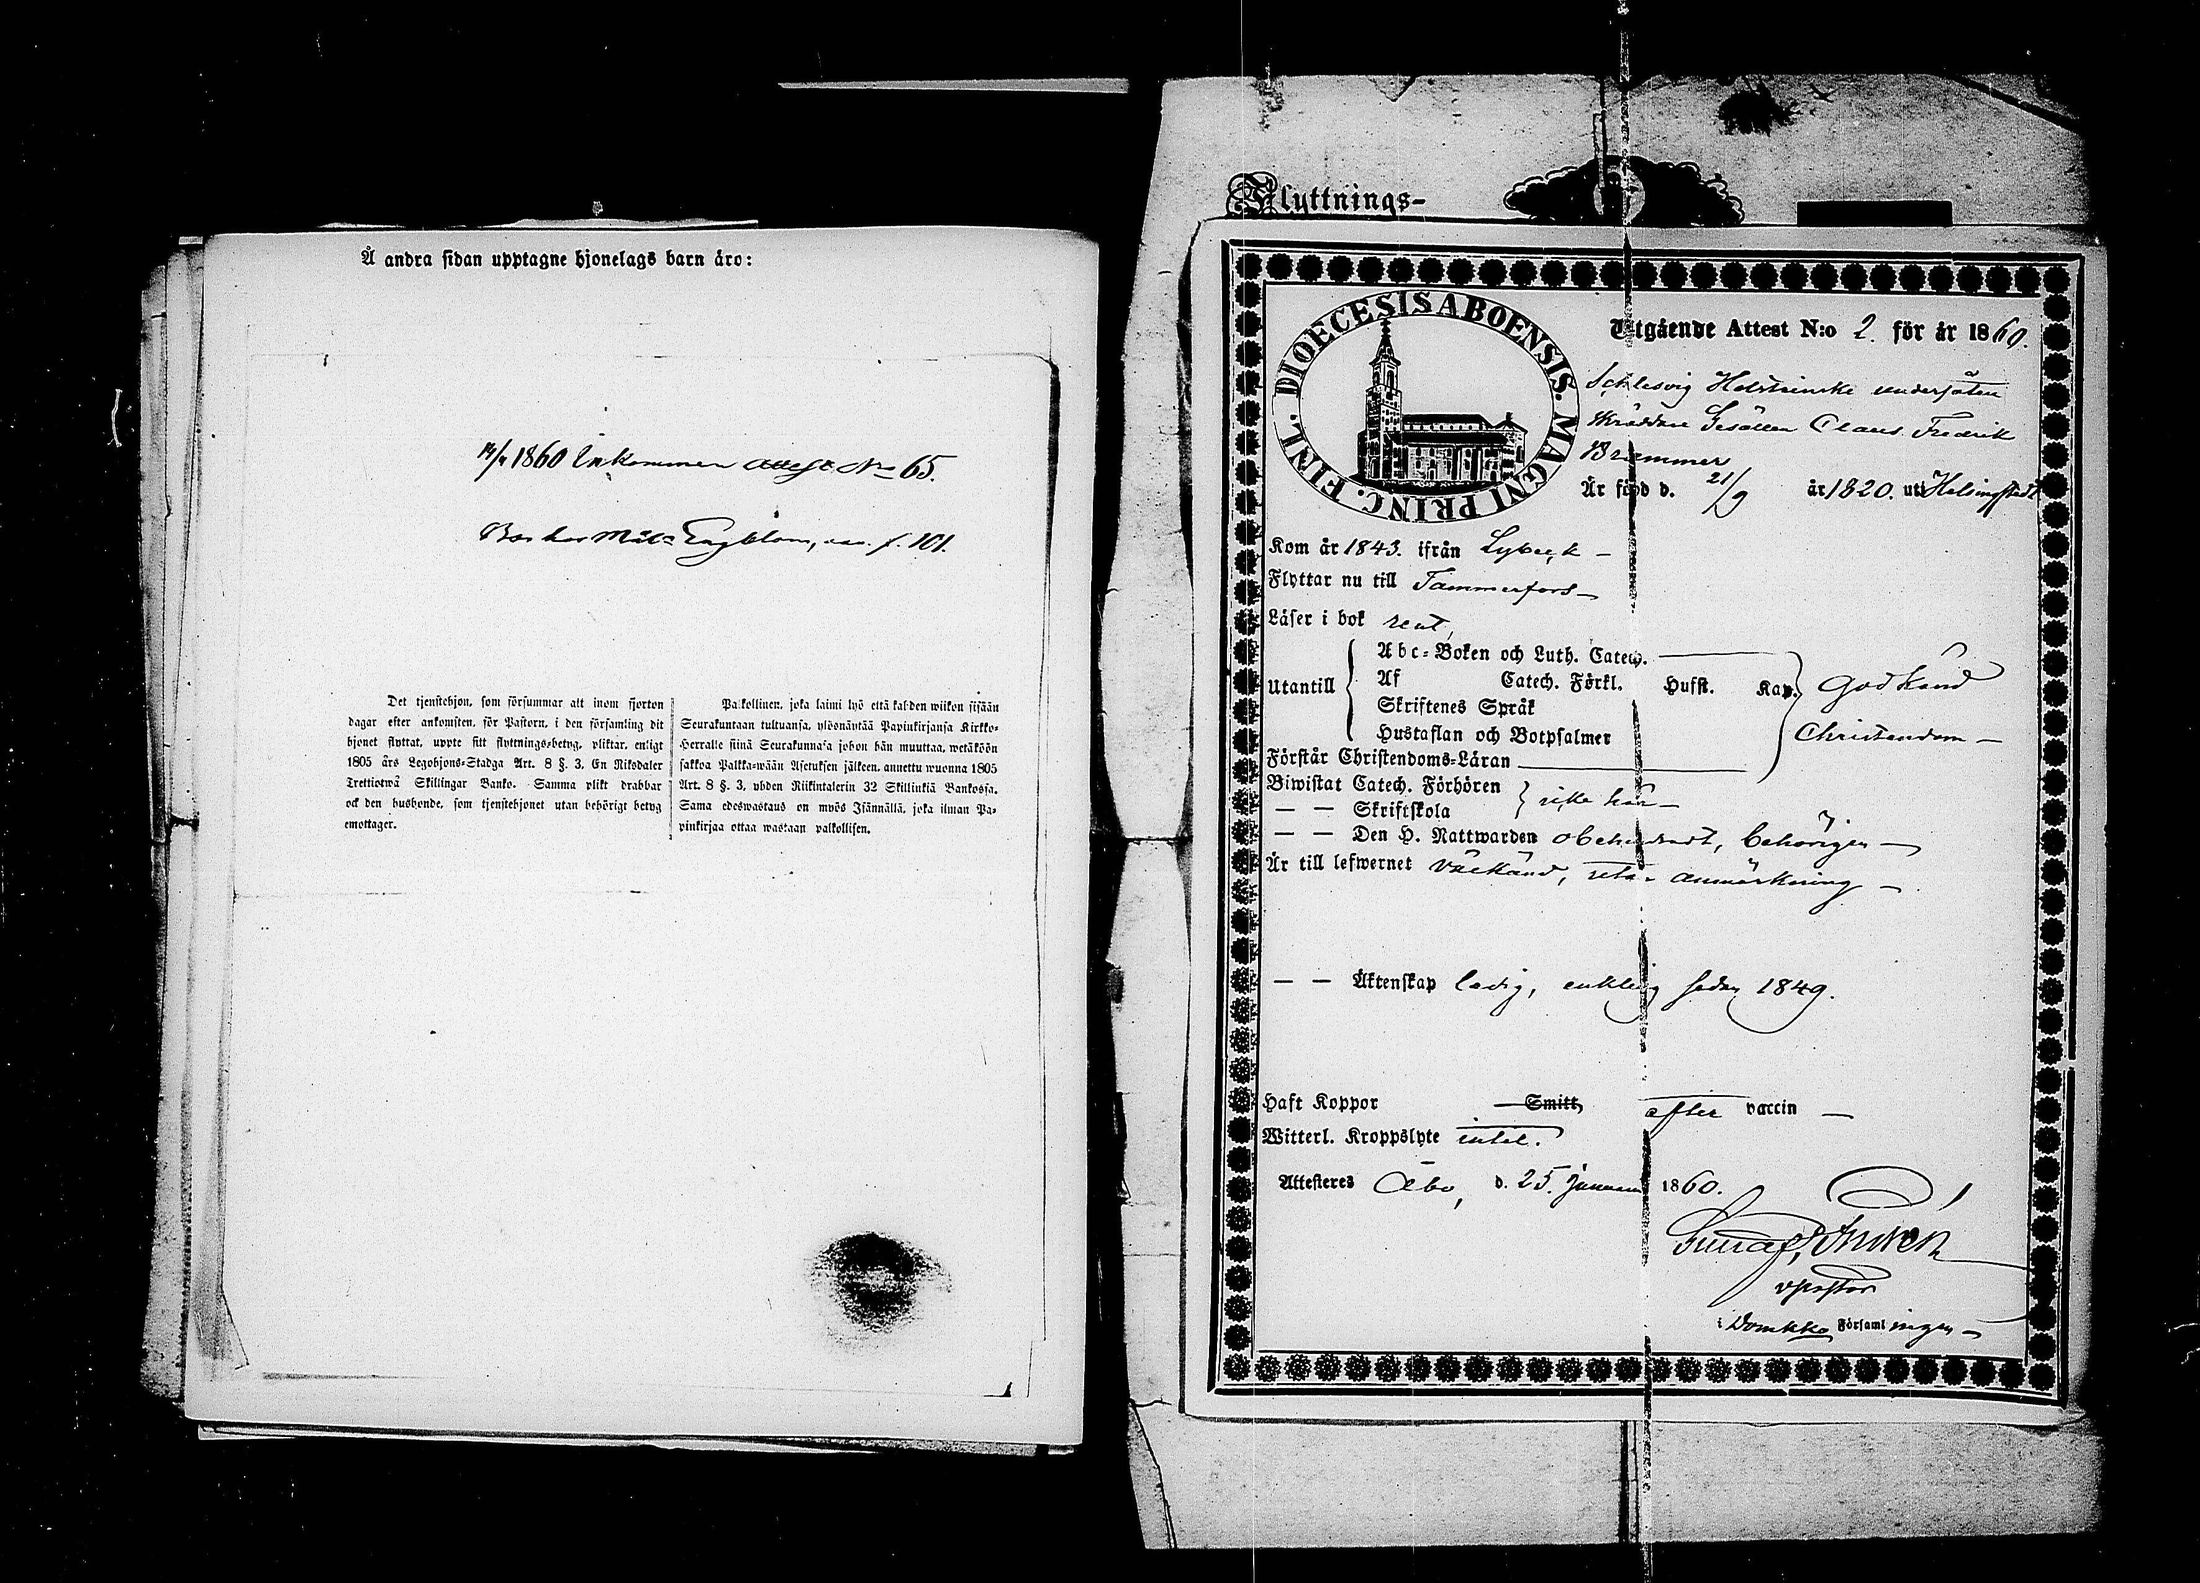 Å andra sidan upptagne hjonelags barn äro:
1860 Inkommen attest No 65.
Engblom, f. 101.
Det tjenstehjon, som försummar att inom fjorton
dagar efter ankomsten, för Pastorn, i den församling dit
hjonet flyttat, uppte sitt flyttnings-betyg, pliktar, enligt
1805 års Legohjons-Stadga Art. 8 §. 3, En Riksdaler
Trettiotwå Skillingar Banko. Samma plikt drabbar
ock den husbonde, som tjenstehjonet utan behörigt betyg
emottager.
Palkollinen, joka laimi lyö että kahden wiikon sisään
Seurakuntaan tultuansa, ylösnäytää Papinkirjansa Kirkko-
Herralle siinä Seurakunnasa johon hän muuttaa, wetäköön
sakkoa Palkka-wään Asetuksen jälkeen, annettu wuonna 1805
Art. 8 §. 3, yhden Riikintalerin 32 Skillinkiä Bankosja.
Sama edeswastaus on myös Isännällä, joka ilman Pa-
pinkirjaa ottaa wastaan palkollisen.
Flyttnings-
DIOECESIS ABOENSIS. MAGNI PRINC. FINL.
Utgående Attest N:o 2. för år 1860.
Schlesvig Holsteinske undersåten
Skräddare Gesällen Claus Fredrik
Brammer
Är född d. 21/9 år 1820. uti
Kom år 1843. ifrån Lybeck –
Flyttar nu till Tammerfors –
Läser i bok rent,
Utantill
Abc-Boken och Luth. Catech.
Af Catech. Förkl. Husft. Kap.
Skriftenes Språk
Hustaflan och Botpsalmer
godkänd
Christendom –
Förstår Christendoms-Läran
Biwistat Catech. Förhören
— — Skriftskola
icke här –
— — Den H. Nattwarden obehindradt, behörigen –
Är till lefwernet välkänd, utan anmärkning –
— — Äktenskap ledig, enkling sedan 1849.
Haft Koppor Smitt, efter vaccin –
Witterl. Kroppslyte intet.
Attesteres Åbo, d. 25. Januari 1860.
v Pastor
i Domkko Församlingen –